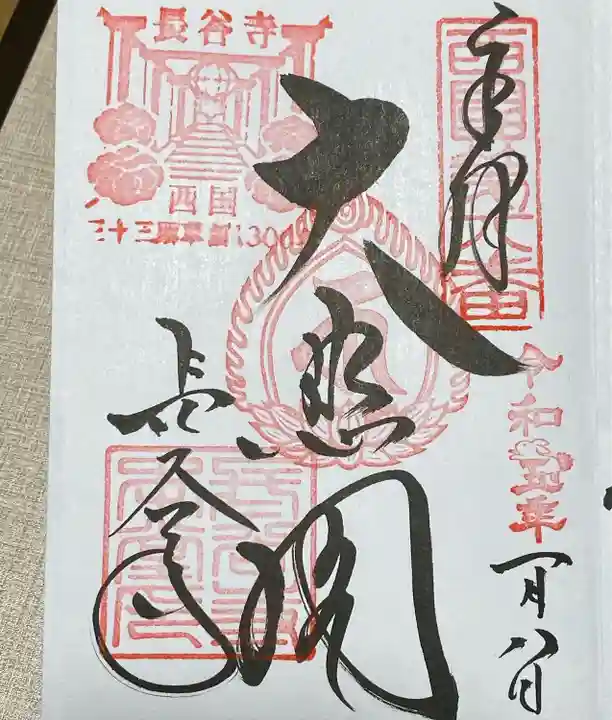 奉拝
西国第八番
令和五年
一月八日
大悲閣
長谷寺
長谷寺
西国
三十三所草創1300年